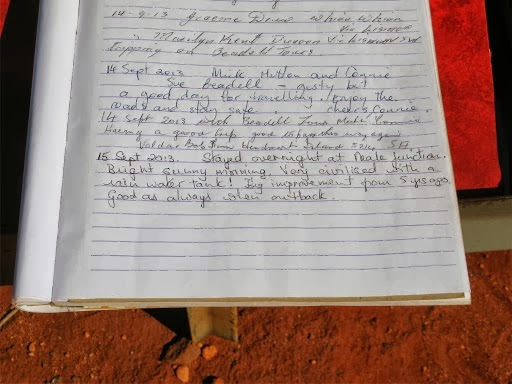 14-9-13 Graeme Drew Whim Whim
Via Lismore
" Marilyn Kreal Dunoon Via Lismore NSW
tagging on Beadell Tours
14 Sept 2013 Mick Hutton and Connie
Sue Beadell - gusty but
a good day for travelling! Enjoy the
roads and stay safe. cheers Connie.
14 Sept 2013 with Beadell Tours Mick Connie
Having a good trip good to
Island SA
15 Sept 2013. Stayed overnight at Neale Junction.
Bright sunny morning. Very civilised with a
rain water tank! Big improvement from 5 yrs ago.
Good as always when outback.